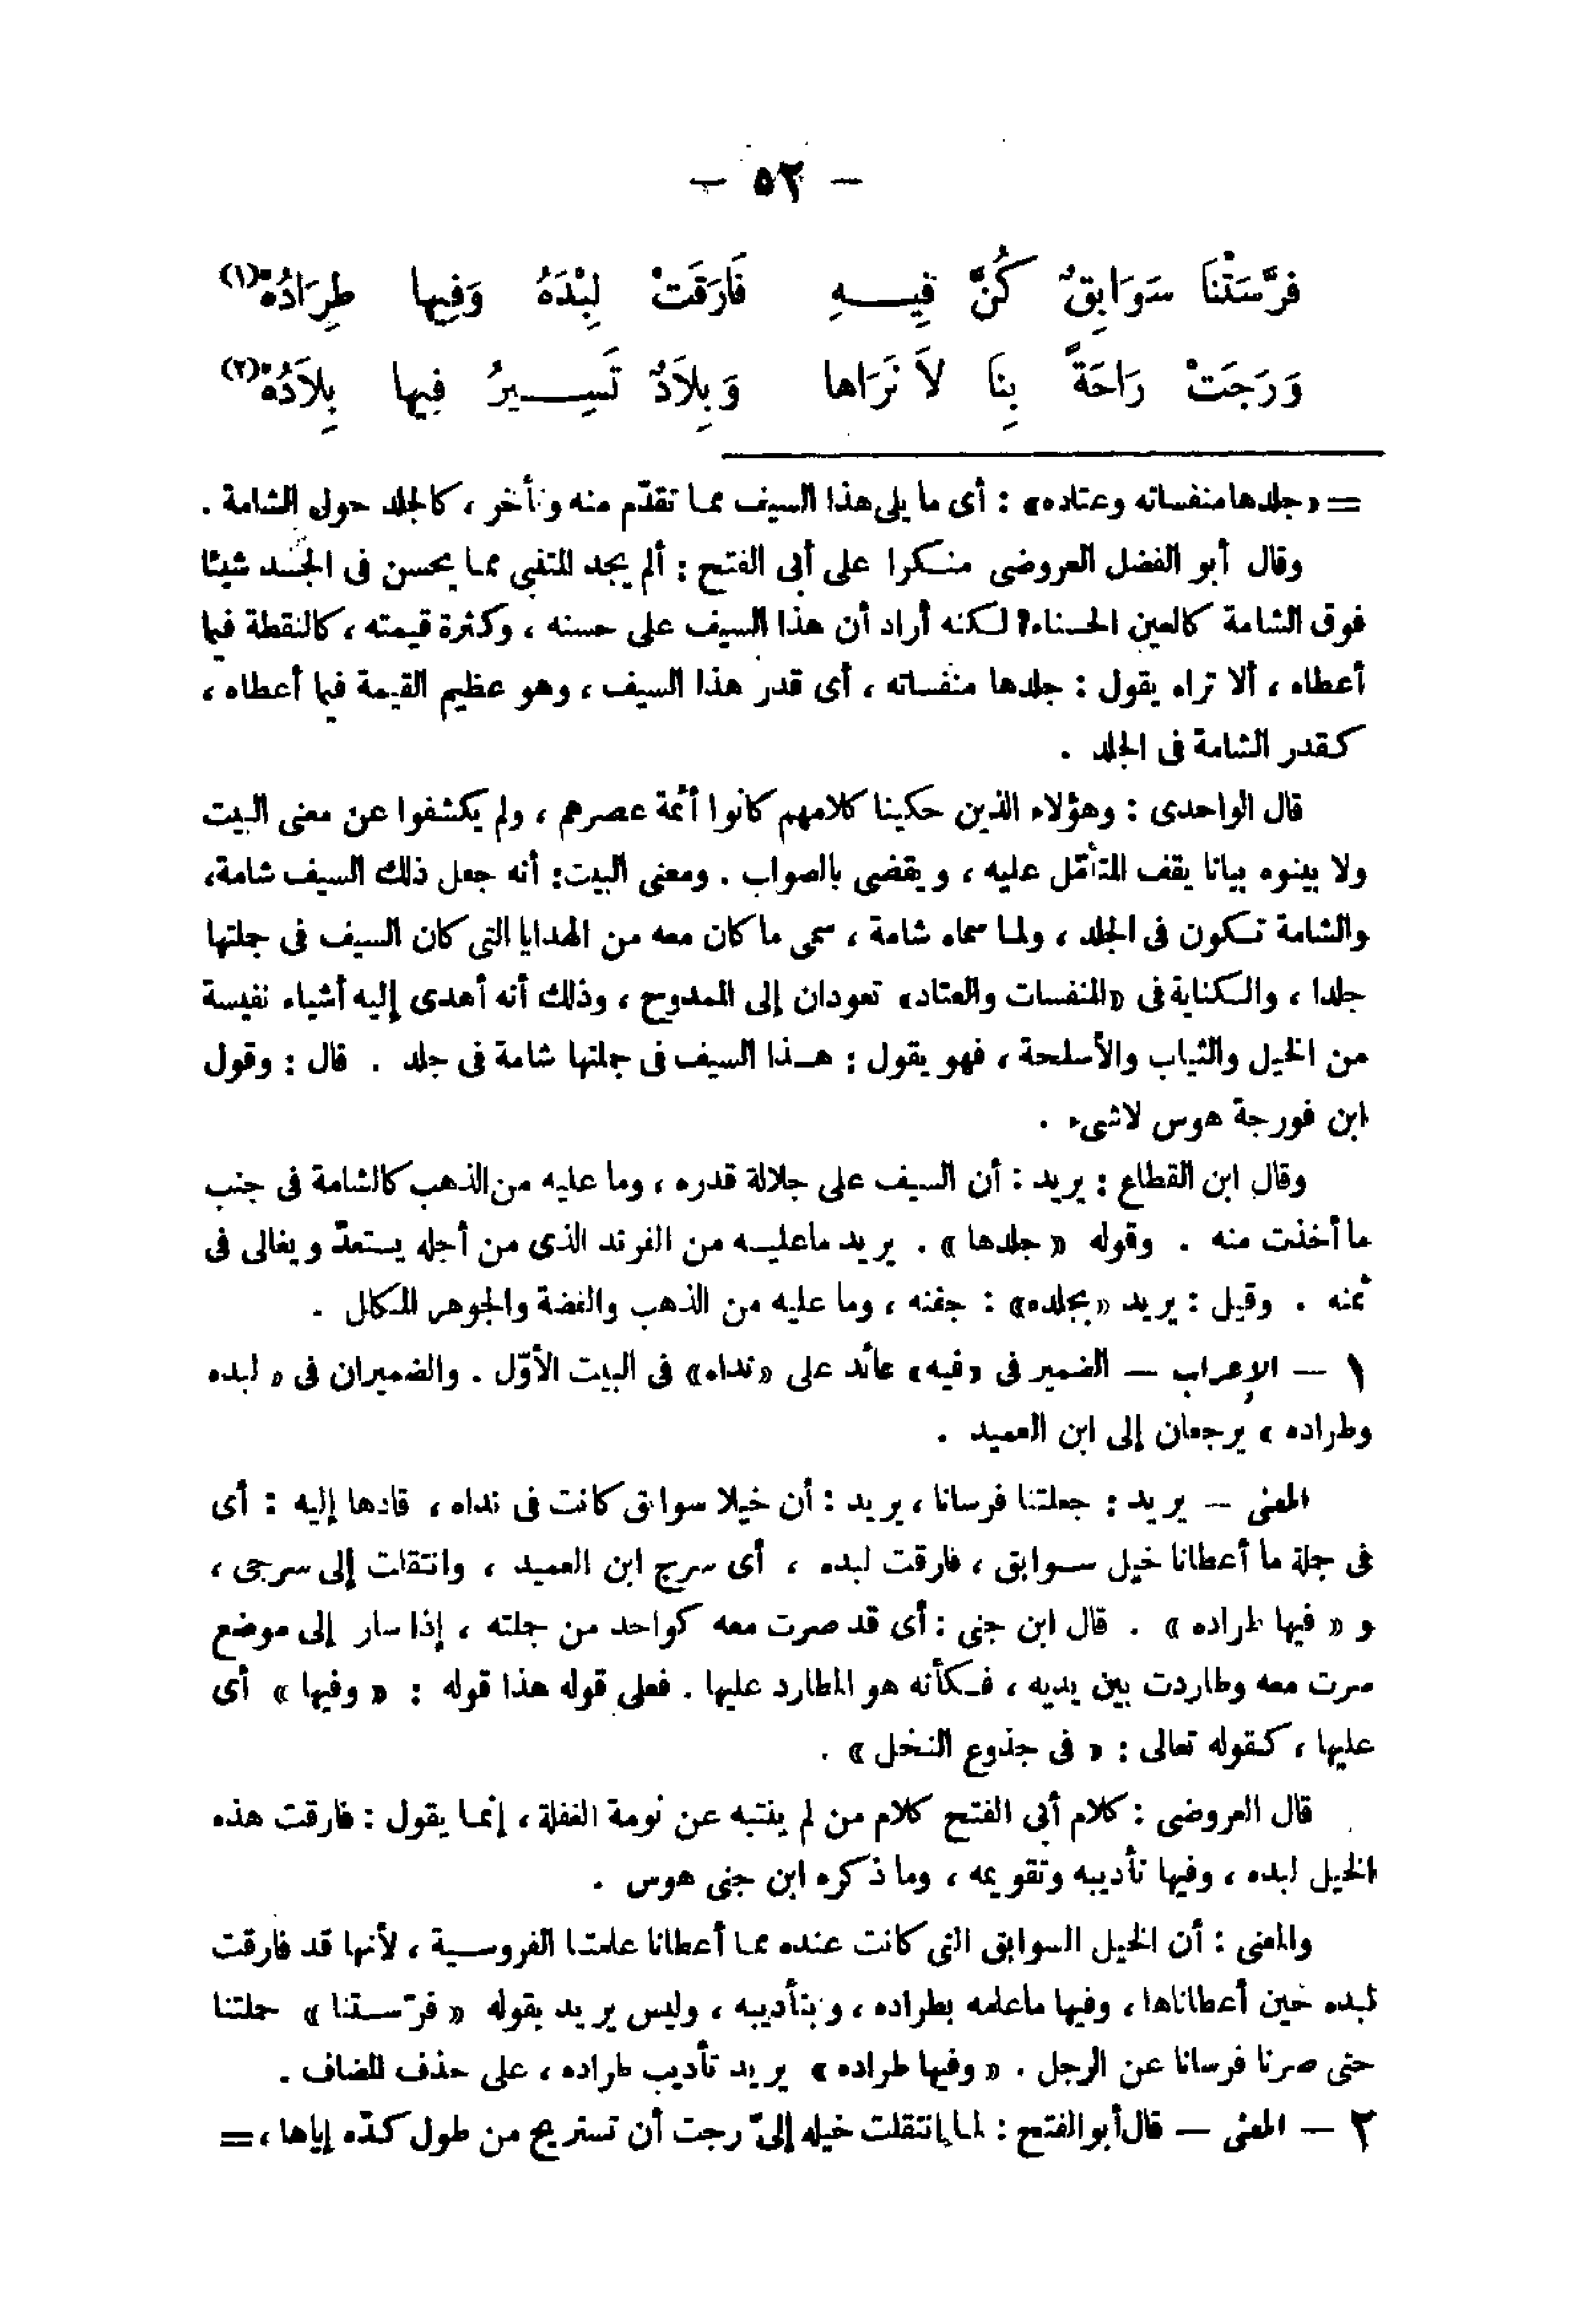 – ٥٢ –
فرَّسَتْنَا سَوَابِقٌ كُنَّ فِيهِ فَارَقَتْ لِبْدَهُ وَفِيها طِرَادُهْ(١)
وَرَجَتْ رَاحَةً بِنَا لاَ نَرَاها وَبِلاَدٌ تَسِيرُ فِيها بِلاَدُهْ(٢)
= «جلدها منفساته وعتاده» : أى ما يلى هذا السيف مما تقدّم منه وتأخر ، كالجلد حول الشامة .
وقال أبو الفضل العروضى منكرا على أبى الفتح : ألم يجد المتنبي مما يحسن فى الجسد شيئا
فوق الشامة كالعين الحسناء؟ لكنه أراد أن هذا السيف على حسنه ، وكثرة قيمته ، كالنقطة فيما
أعطاه ، ألا تراه يقول : جلدها منفساته ، أى قدر هذا السيف ، وهو عظيم القيمة فيما أعطاه ،
كقدر الشامة فى الجلد .
قال الواحدى : وهؤلاء الذين حكينا كلامهم كانوا أئمة عصرهم ، ولم يكشفوا عن معنى البيت
ولا بينوه بيانا يقف المتأمّل عليه ، ويقضى بالصواب . ومعنى البيت: أنه جعل ذلك السيف شامة،
والشامة تكون فى الجلد ، ولما سماه شامة ، سمى ما كان معه من الهدايا التى كان السيف فى جملتها
جلدا ، والكناية فى «المنفسات والعتاد» تعودان إلى الممدوح ، وذلك أنه أهدى إليه أشياء نفيسة
من الخيل والثياب والأسلحة ، فهو يقول : هذا السيف فى جملتها شامة فى جلد . قال : وقول
ابن فورجة هوس لاشىء .
وقال ابن القطاع : يريد : أن السيف على جلالة قدره ، وما عليه من الذهب كالشامة فى جنب
ما أخذت منه . وقوله « جلدها » . يريد ماعليه من الفرند الذى من أجله يستعدّ ويغالى فى
ثمنه . وقيل : يريد «بجلده» : جفنه ، وما عليه من الذهب والفضة والجوهر المكال .
١ – الإعراب – الضمير فى «فيه» عائد على «نداه» فى البيت الأوّل . والضميران فى « لبده
وطراده » يرجعان إلى ابن العميد .
المعنى – يريد : جعلتنا فرسانا ، يريد : أن خيلا سوابق كانت فى نداه ، قادها إليه : أى
فى جملة ما أعطانا خيل سوابق ، فارقت لبده ، أى سرج ابن العميد ، وانتقلت إلى سرجى ،
و « فيها طراده » . قال ابن جنى : أى قد صرت معه كواحد من جملته ، إذا سار إلى موضع
سرت معه وطاردت بين يديه ، فكأنه هو المطارد عليها . فعلى قوله هذا قوله : « وفيها » أى
عليها ، كقوله تعالى : « فى جذوع النخل » .
قال العروضى : كلام أبى الفتح كلام من لم ينتبه عن نومة الغفلة ، إنما يقول : فارقت هذه
الخيل لبده ، وفيها تأديبه وتقويمه ، وما ذكره ابن جنى هوس .
والمعنى : أن الخيل السوابق التى كانت عنده مما أعطانا علمتنا الفروسية ، لأنها قد فارقت
لبده حين أعطاناها ، وفيها ماعلمه بطراده ، وبتأديبه ، وليس يريد بقوله « فرّستنا » حملتنا
حتى صرنا فرسانا عن الرجل . « وفيها طراده » يريد تأديب طراده ، على حذف المضاف .
٢ – المعنى – قال أبو الفتح : لما انتقلت خيله إلىّ رجت أن تستريح من طول كدّه إياها ، =